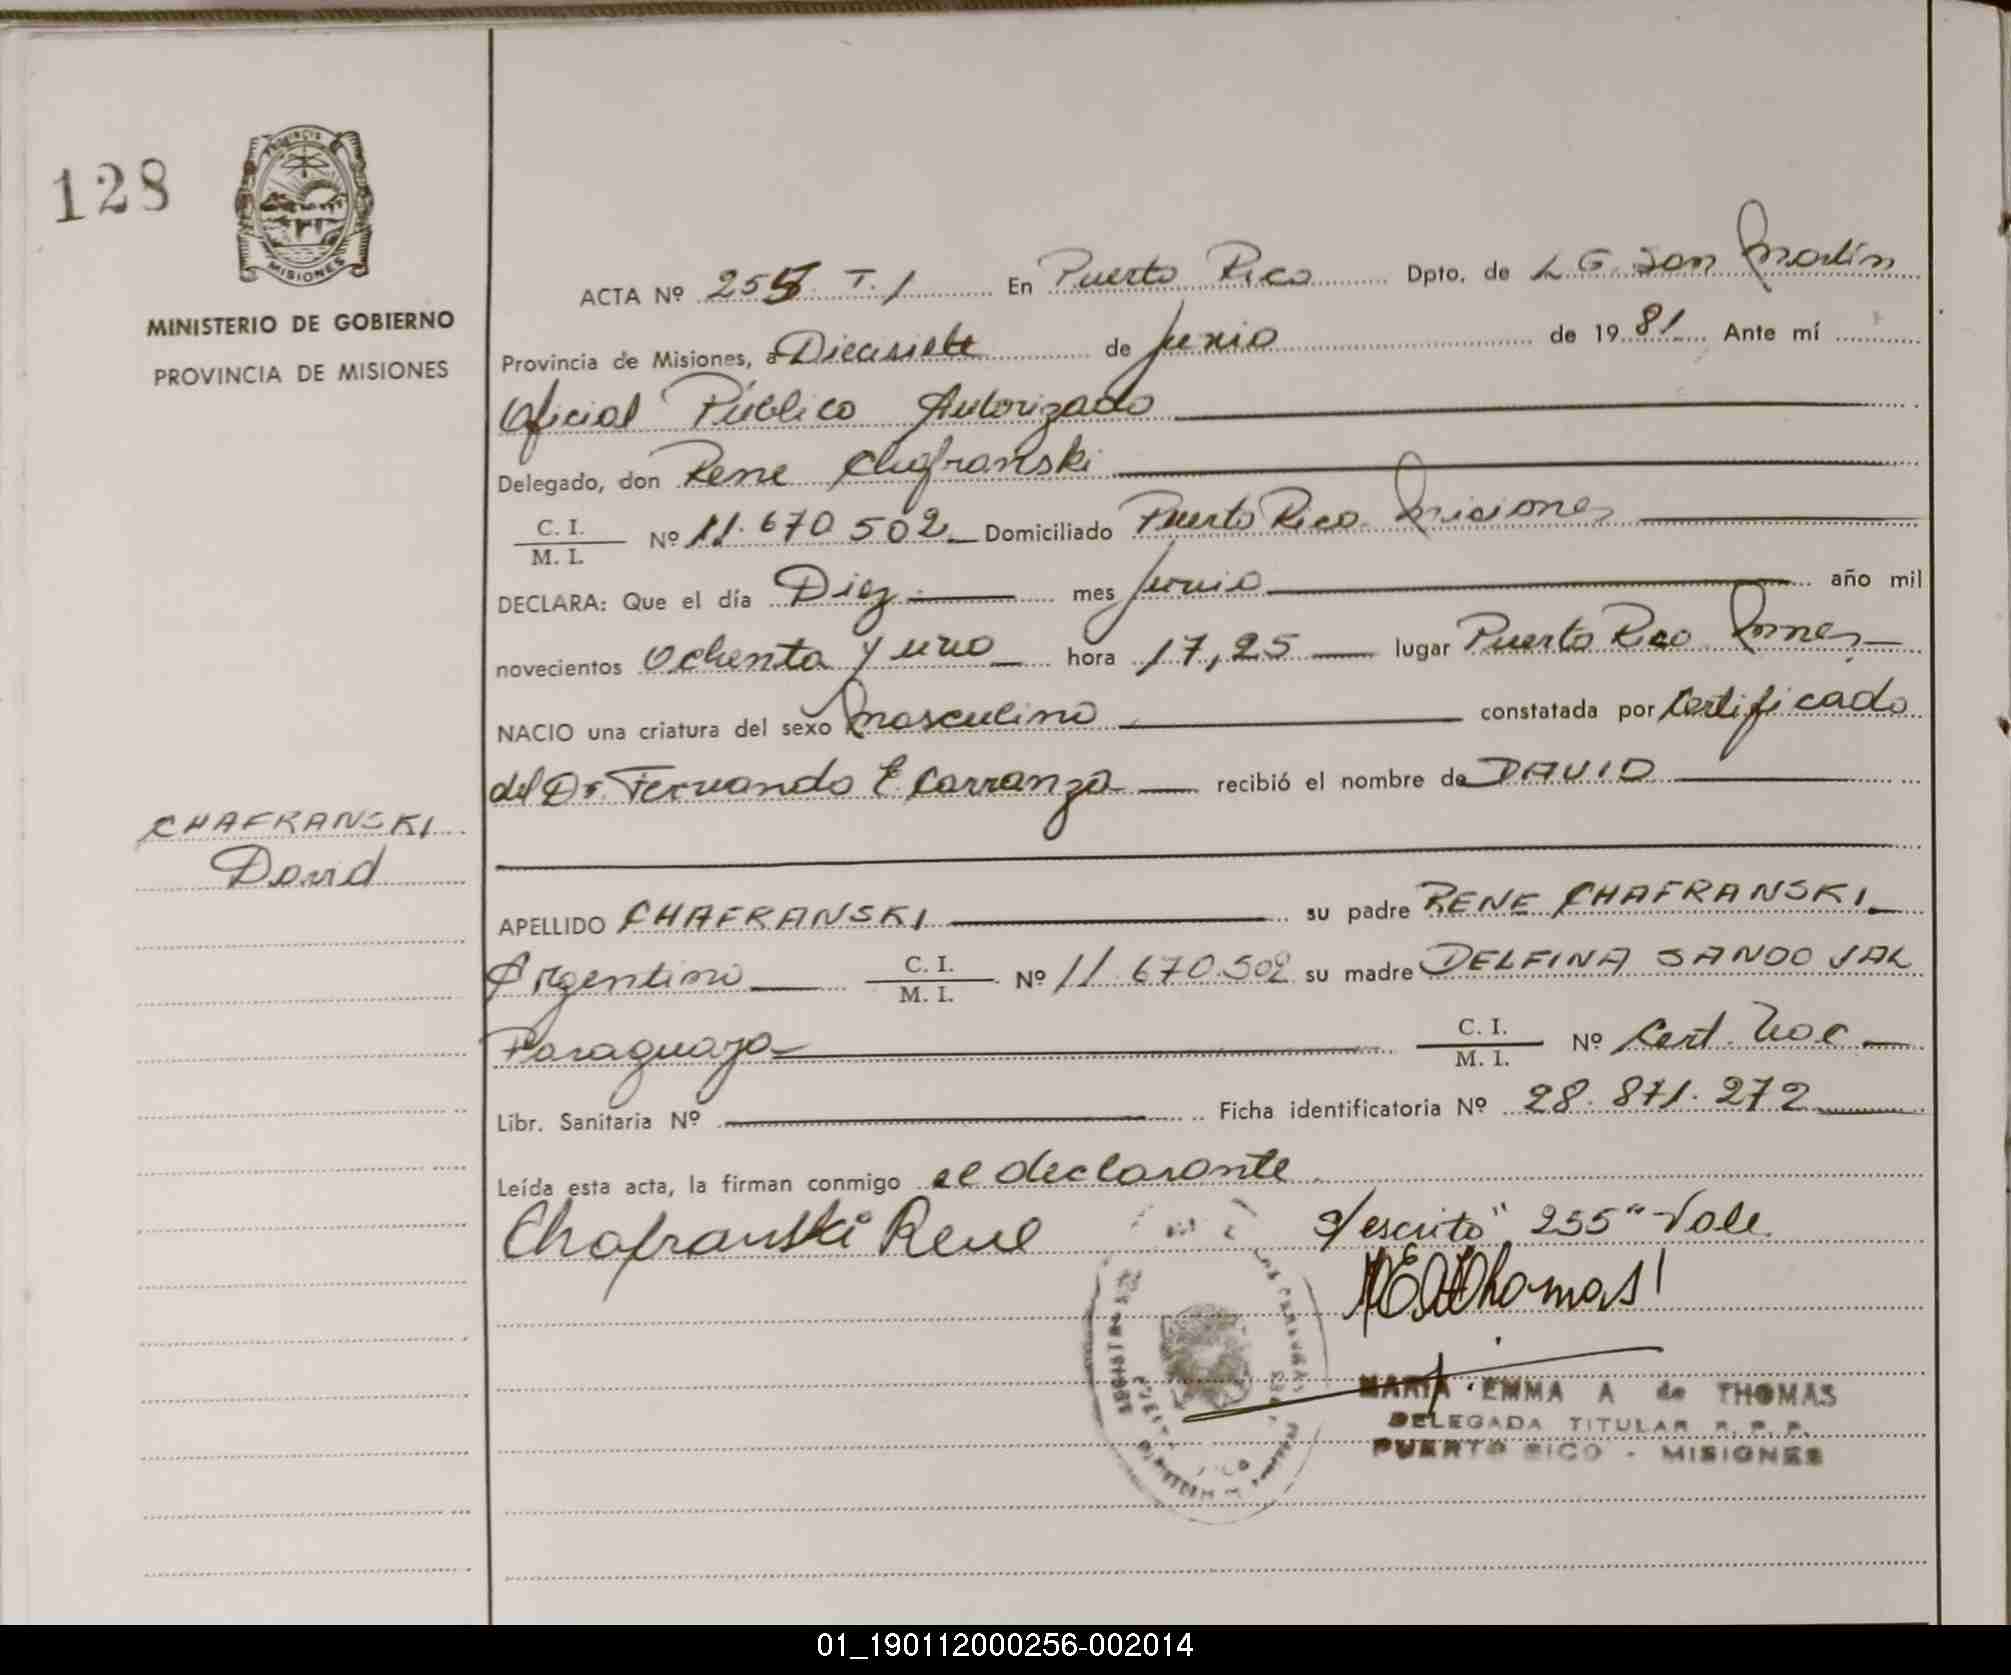 128
PROVINCIA
MISIONES
MINISTERIO DE GOBIERNO
PROVINCIA DE MISIONES
CHAFRANSKI
David
ACTA Nº 255 T. 1 En Puerto Rico Dpto. de L. G. San Martín
Provincia de Misiones, a Diecisiete de Junio de 1981 Ante mí
Oficial Público Autorizado
Delegado, don Rene Chafranski
C. I.
M. I. Nº 11.670 502 Domiciliado Puerto Rico Misiones
DECLARA: Que el día Diez mes Junio año mil
novecientos Ochenta y uno hora 17,25 lugar Puerto Rico Mnes
NACIO una criatura del sexo masculino constatada por Certificado
del Dr. Fernando E Carranza recibió el nombre de DAVID
APELLIDO CHAFRANSKI su padre RENE CHAFRANSKI
Argentino C. I.
M. I. Nº 11.670.502 su madre DELFINA SANDOVAL
Paraguaya C. I.
M. I. Nº Cert. Nac
Libr. Sanitaria Nº Ficha identificatoria Nº 28.871.272
Leída esta acta, la firman conmigo el declarante
Chafranski Rene s/escrito "255" Vale
MEAdeThomas
MARIA EMMA A de THOMAS
DELEGADA TITULAR R. P. P.
PUERTO RICO - MISIONES
01_190112000256-002014